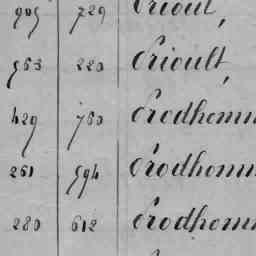 905 729 Prioul,
563 220 Prioult,
429 760 Prodhomm
261 594 Prodhomm
280 612 Prodhomm